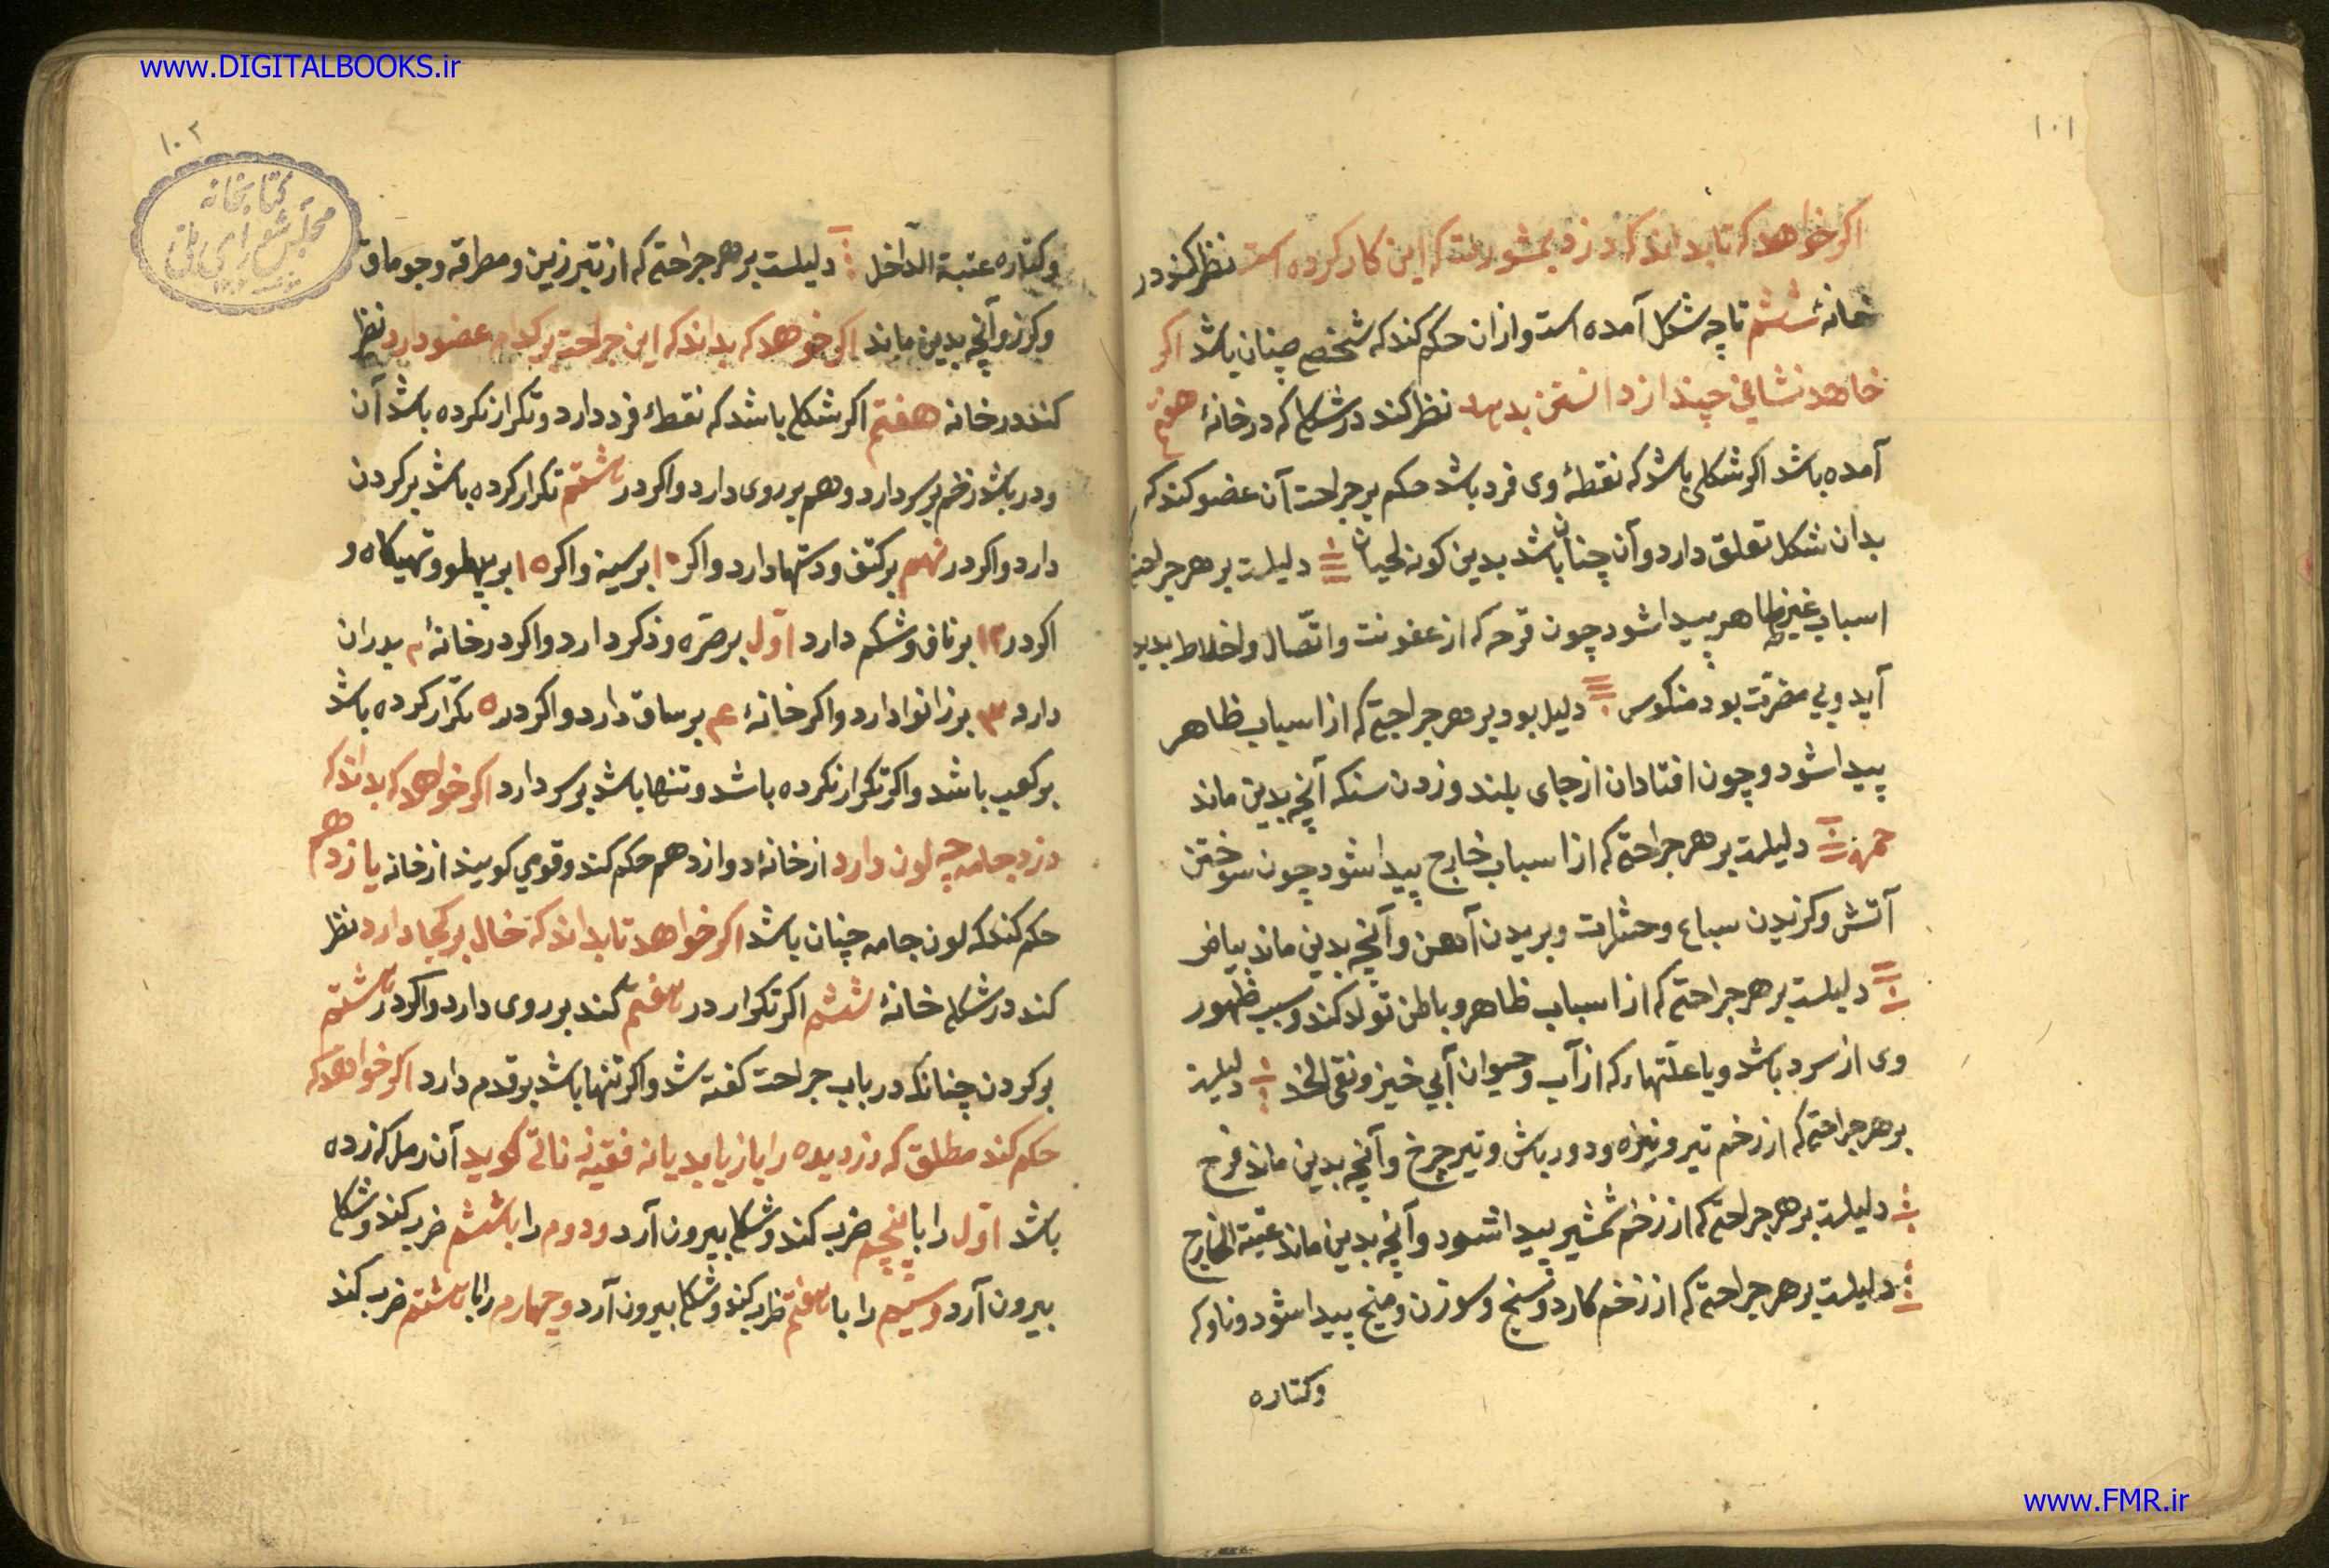 www.DIGITALBOOKS.ir
۱۰۱
اکر خواهد که تا بداند که دزد بمشورت که این کار کرده است نظر کند در
خانهٔ ششم تا چه شکل آمده است و ازان حکم کند که شخص چنان باشد اکر
خاهد نشانی چند از دانستن بدهد نظر کند در شکلی که در خانهٔ هفتم
آمده باشد اکر شکلی باشد که نقطهٔ وی فرد باشد حکم بر جراحت آن عضو کند که
بدان شکل تعلق دارد و آن چنان باشد بدین کونه لحیان دلیلست بر هر جراحتی
اسباب غیر ظاهر پیدا شود چون قرحه که از عفونت و اتّصال و اخلاط بدید
آید و بی مضرّت بود منکوس دلیل بود بر هر جراحتی که از اسباب ظاهر
پیدا شود و چون افتادان از جای بلند و زدن سنک آنچه بدین ماند
حمره دلیلست بر هر جراحتی که از اسباب خارج پیدا شود چون سوختن
آتش و کزیدن سباع و حشرات و بریدن آهن و آنچه بدین ماند بیاض
دلیلست بر هر جراحتی که از اسباب ظاهر و باطن تولد کند و سبب ظهور
وی از سرد باشد و یا علّتهاء که از آب و حیوان آبی خیزد نقی الخد دلیلست
بر هر جراحتی که از زخم تیر و نیزه و دور باش و تیر چرخ و آنچه بدین ماند فرح
دلیلست بر هر جراحتی که از زخم شمشیر پیدا شود و آنچه بدین ماند عتبة الخارج
دلیلست بر هر جراحتی که از زخم کارد و سیخ و سوزن و میخ پیدا شود و ناوک
و کتاره
۱۰۲
کتابخانه
مجلس شورای ملی
و کتاره عتبة الدّاخل دلیلست بر هر جراحتی که از تبر زین و مطراقه و چوماق
و کرز و آنچه بدین ماند اکر خوهد که بداند که این جراحت بر کدام عضو دارد نظر
کند در خانه هفتم اکر شکلی باشد که نقطهٔ فرد دارد و تکرار نکرده باشد آن
و در باشد زخم بر سر دارد و هم بر روی دارد و اکر در هشتم تکرار کرده باشد بر کردن
دارد و اکر در نهم بر کتف و دستها دارد و اکر ۱۰ بر سینه و اکر ۱۵ بر پهلو و تهیکاه و
اکر در ۱۲ بر ناف و شکم دارد اوّل بر صرّه و ذکر دارد و اکر در خانهٔ ۲ بر ران
دارد ۳ بر زانو دارد و اکر خانهٔ ۴ بر ساق دارد و اکر در ۵ تکرار کرده باشد
بر کعب باشد و اکر تکرار نکرده باشد و تنها باشد بر سر دارد اکر خواهد که بداند که
دزد جامه چه لون دارد از خانهٔ دوازدهم حکم کند و قومی کویند از خانه یازدهم
حکم کند که لون جامه چنان باشد اکر خواهد تا بداند که خال بر کجا دارد نظر
کند در شکلی خانهٔ ششم اکر تکرار در هفتم کند بر روی دارد و اکر در هشتم
بر کردن چنانک در باب جراحت کفته شد و اکر تنها باشد بر قدم دارد اکر خواهد که
حکم کند مطلق که دزدیده را باز یابد یا نه فقیه زناتی کوید آن رمل که زده
باشد اوّل را با پنجم ضرب کند و شکلی بیرون آرد و دوم را با ششم ضرب کند و شکلی
بیرون آرد و سیم را با هفتم ضرب کند و شکلی بیرون آرد و چهارم را با هشتم ضرب کند
www.FMR.ir